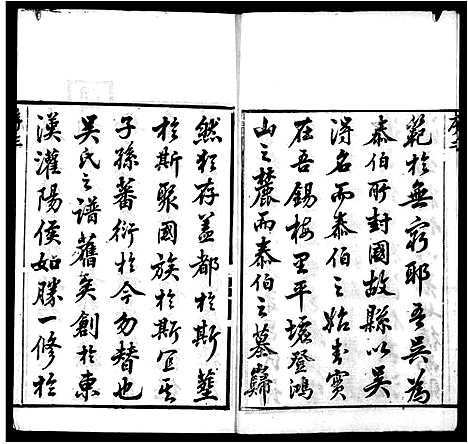 範於無窮耶吾吳為
泰伯所封國故縣以吳
得名而泰伯之始封實
在吾錫梅里平墟登鴻
山之麓而泰伯之墓巋
然猶存蓋都於斯葬
於斯聚國族於斯宜其
子孫蕃衍於今勿替也
吳氏之譜舊矣創於東
漢灌陽侯如勝一修於